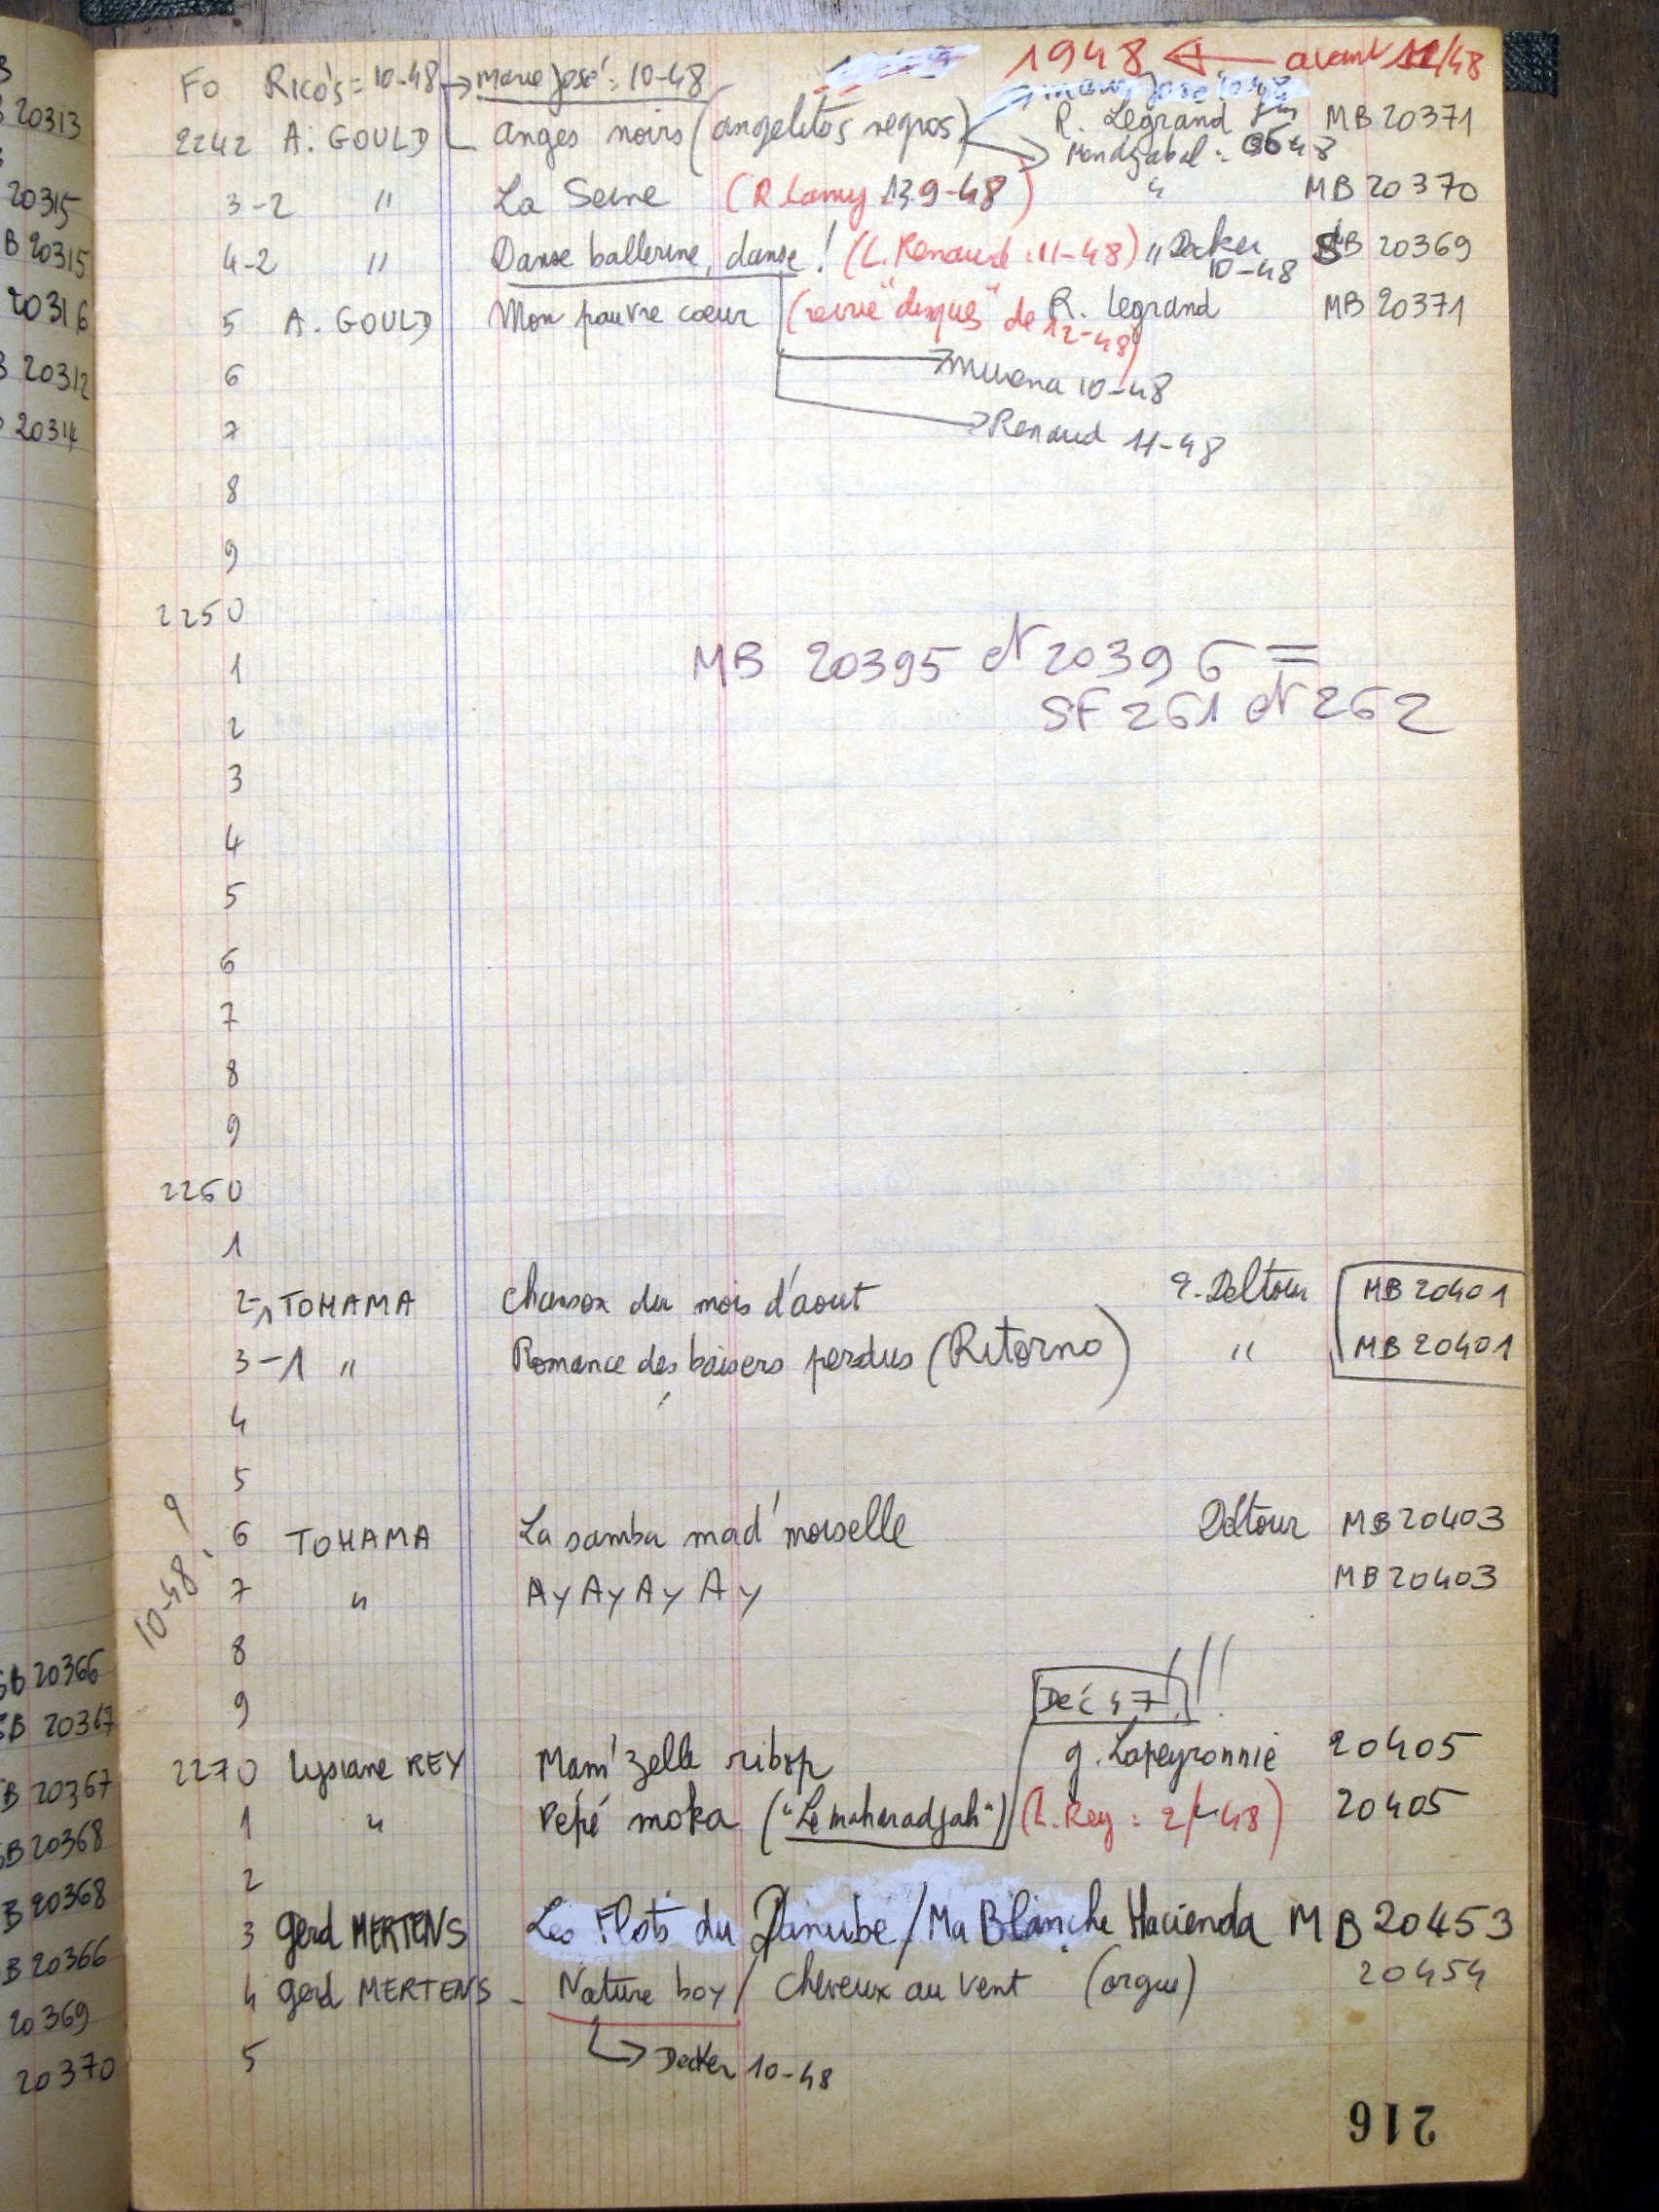 1948 ← avant 11/48
Fo Rico's = 10-48 → Marie José : 10-48
2242 A. GOULD Anges noirs (angelitos negros) R. Legrand MB 20371
3-2 " La Seine (R Lamy 13.9-48) " MB 20370
4-2 " Danse ballerine, danse ! (L. Renaud : 11-48) " Decker 10-48 SB 20369
5 A. GOULD Mon pauvre coeur (revue "disques" de 12-48) R. Legrand MB 20371
6 → Murena 10-48
7 → Renaud 11-48
8
9
2250
1 MB 20395 et 20396 =
2 SF 261 et 262
3
4
5
6
7
8
9
2260
1
2-1 TOHAMA Chanson du mois d'aout Deltour MB 20401
3-1 " Romance des baisers perdus (Ritorno) " MB 20401
4
5
10-48 ?
6 TOHAMA La samba mad'moiselle Deltour MB 20403
7 " Ay Ay Ay Ay MB 20403
8
9 Déc 47 !!!
2270 Lysiane REY Mam'zelle ribop g. Lapeyronnie 20405
1 " Pépé moka ("Le maharadjah") (L. Rey : 2/-48) 20405
2
3 Gerd MERTENS Les Flots du Danube / Ma Blanche Hacienda MB 20453
4 Gerd MERTENS - Nature boy / Cheveux au vent (orgue) 20454
5 → Decker 10-48
216
20313
20315
B 20315
20316
20312
20314
SB 20366
SB 20367
B 20367
SB 20368
B 20368
B 20366
20369
20370